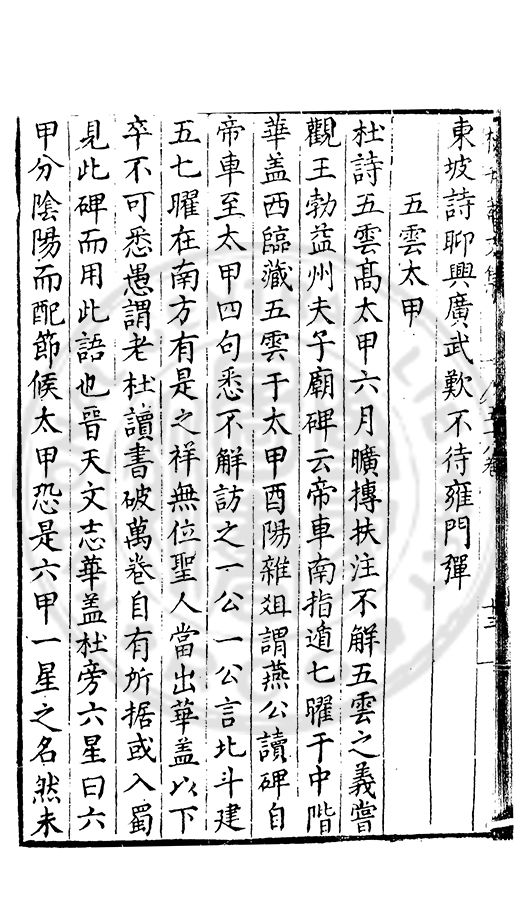 東坡詩聊興廣武歎不待雍門彈
五雲太甲
杜詩五雲髙太甲六月曠摶扶注不解五雲之義嘗
觀王勃益州夫子廟碑云帝車南指遁七曜于中階
華盖西臨藏五雲于太甲酉陽雜俎謂燕公讀碑自
帝車至太甲四句悉不解訪之一公一公言北斗建
五七曜在南方有是之祥無位聖人當出華盖以下
卒不可悉愚謂老杜讀書破萬卷自有所据或入蜀
見此碑而用此語也晉天文志華盖杜旁六星曰六
甲分陰陽而配節候太甲恐是六甲一星之名然未